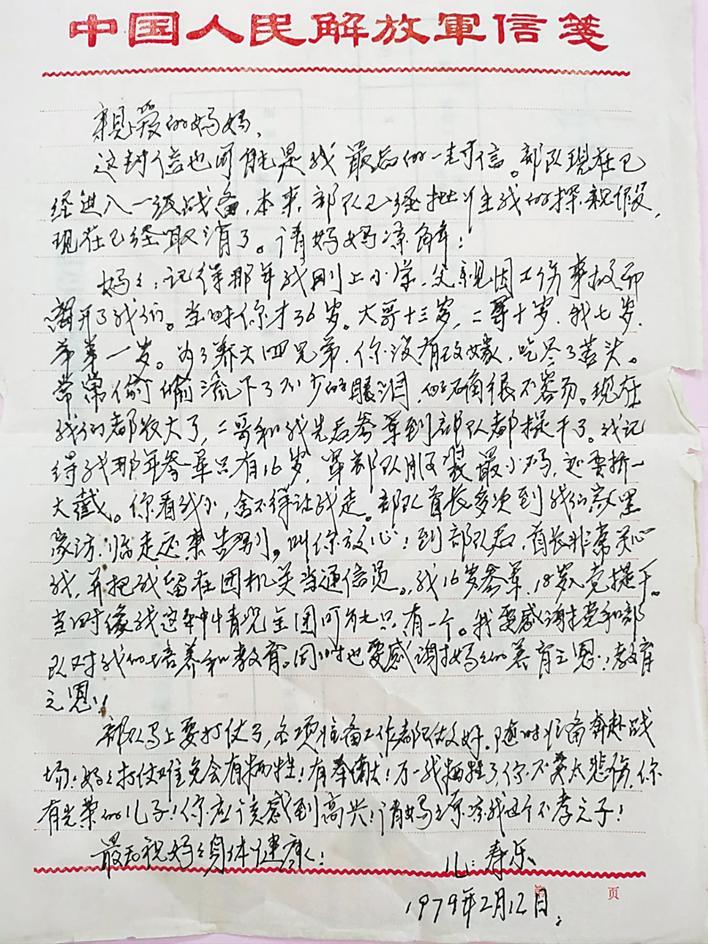 中国人民解放軍信笺
親爱的妈妈,
这封信也可能是我最后的一封信。部队現在已
经进入一级战备,本来,部队已经批准我的探親假,
現在已经取消了。请妈妈凉解!
妈々:记得那年我刚上小学,父亲因工伤事故而
离开了我们。当时你才36岁。大哥十三岁,二哥十岁,我七岁,
弟弟一岁。为了养大四兄弟,你没有改嫁,吃尽了苦头。
常常偷偷流下了不少的眼泪,的确很不容易。现在
我们都长大了,二哥和我先后参军到部队都提干了。我记
得我那年参军只有16岁,穿部队服装最小码,还要折一
大截。你看我小,舍不得让我走。部队首长多次到我们家里
家访,临走还来告别,叫你放心!到部队后,首长非常关心
我,并把我留在团机关当通信员。我16岁参军,18岁入党提干。
当时像我这种情况全团可能只有一个。我要感谢党和部
队对我的培养和教育。同时也要感谢妈々的养育之恩!教育
之恩!
部队马上要打仗了,各项准备工作都已做好,随时准备奔赴战
场!妈々打仗难免会有牺牲!有奉献!万一我牺牲了,你不要太悲伤,你
有光荣的儿子!你应该感到高兴!请妈々原凉我这个不孝之子!
最后祝妈々身体健康!
儿:寿乐
页
1979年2月12日。